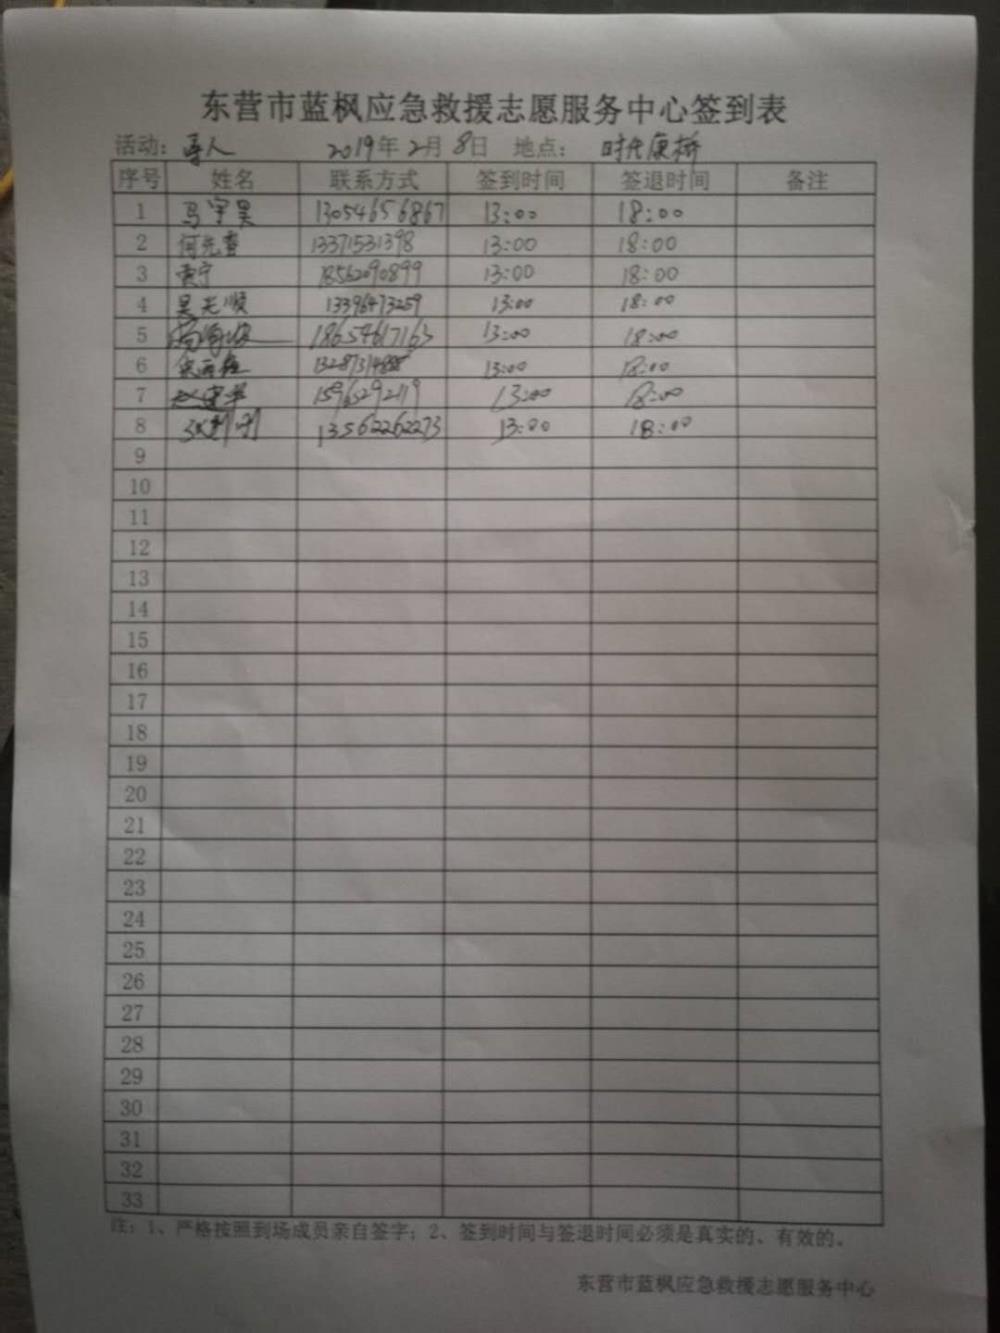 东营市蓝枫应急救援志愿服务中心签到表
活动: 寻人 2019年2月8日 地点: 时代康桥
序号 姓名 联系方式 签到时间 签退时间 备注
1 马宇昊 13054656867 13:00 18:00
2 13371531398 13:00 18:00
3 18562090899 13:00 18:00
4 吴光顺 13396473259 13:00 18:00
5 18654617163 13:00 18:00
6 13:00 18:00
7 15965292119 13:00 18:00
8 13562262273 13:00 18:00
9
10
11
12
13
14
15
16
17
18
19
20
21
22
23
24
25
26
27
28
29
30
31
32
33
注: 1、严格按照到场成员亲自签字; 2、签到时间与签退时间必须是真实的、有效的。
东营市蓝枫应急救援志愿服务中心